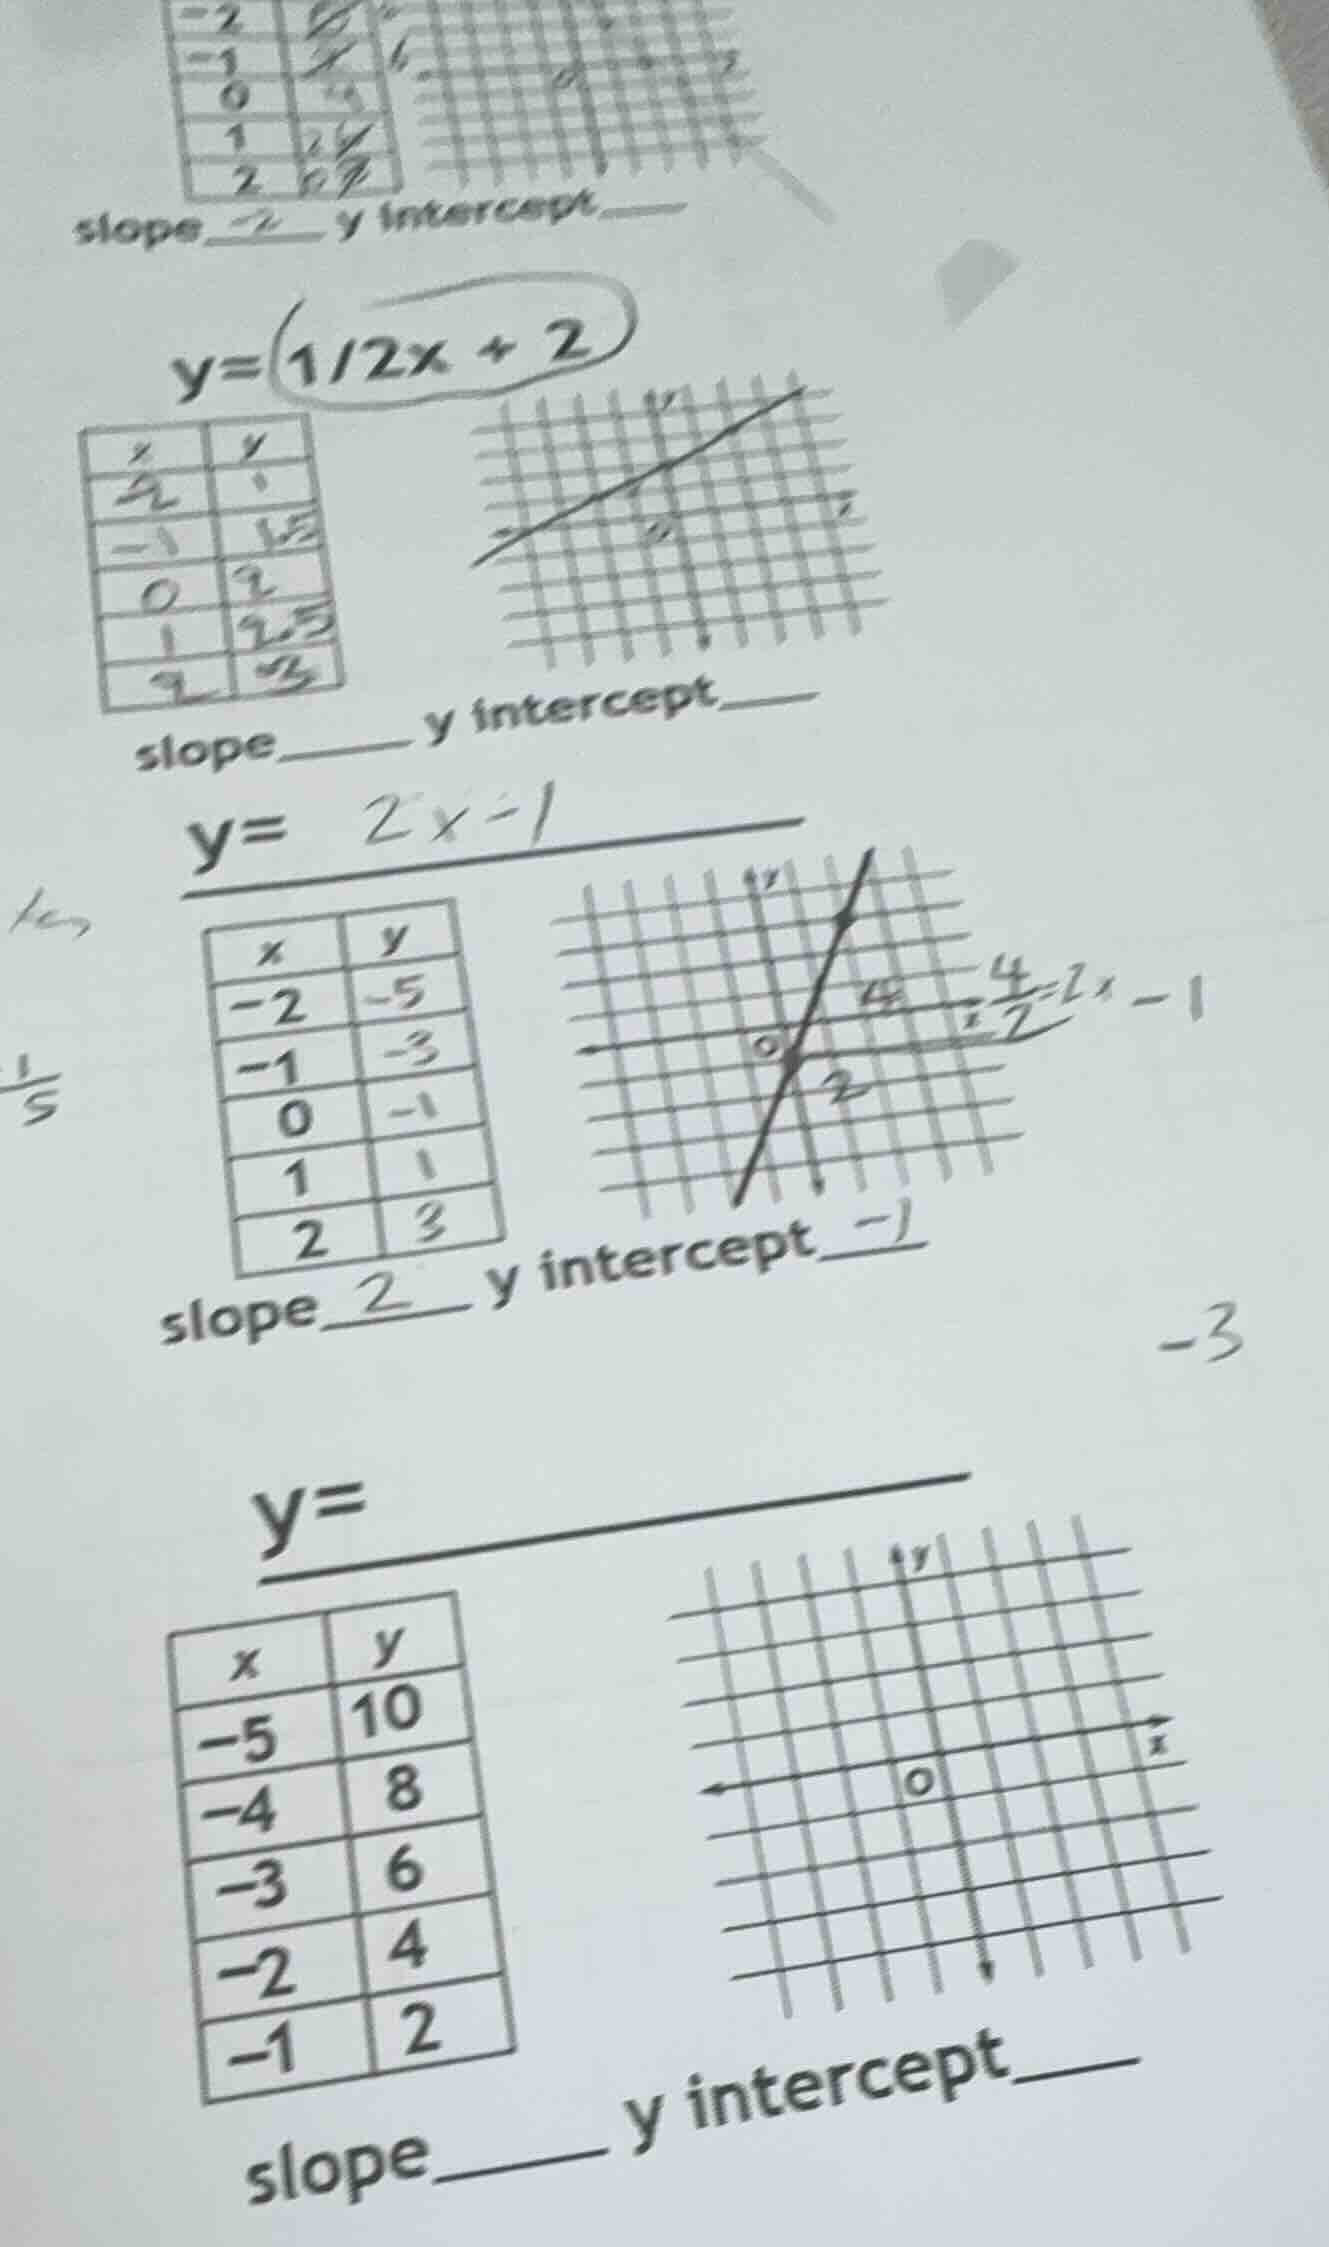 -2
-1
0
1
2
slope -2 y intercept
y= 1/2x + 2
x y
-2 1
-1 1.5
0 2
1 2.5
2 3
y
x
0
slope y intercept
y= 2x-1
x y
-2 -5
-1 -3
0 -1
1 1
2 3
y
4
x
0
2
4/2=2x-1
1/5
slope 2 y intercept -1
-3
y=
x y
-5 10
-4 8
-3 6
-2 4
-1 2
y
x
0
slope y intercept